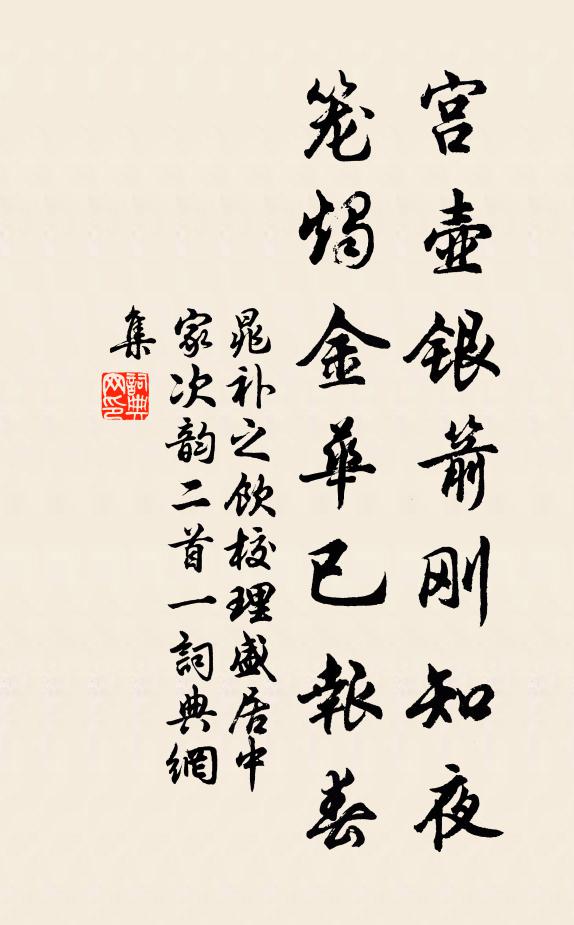 宫壷银箭刚知夜
笼燭金華已報春
晁补之飲校理盛居中
家次韵二首一詞典網
集
詞典
网印